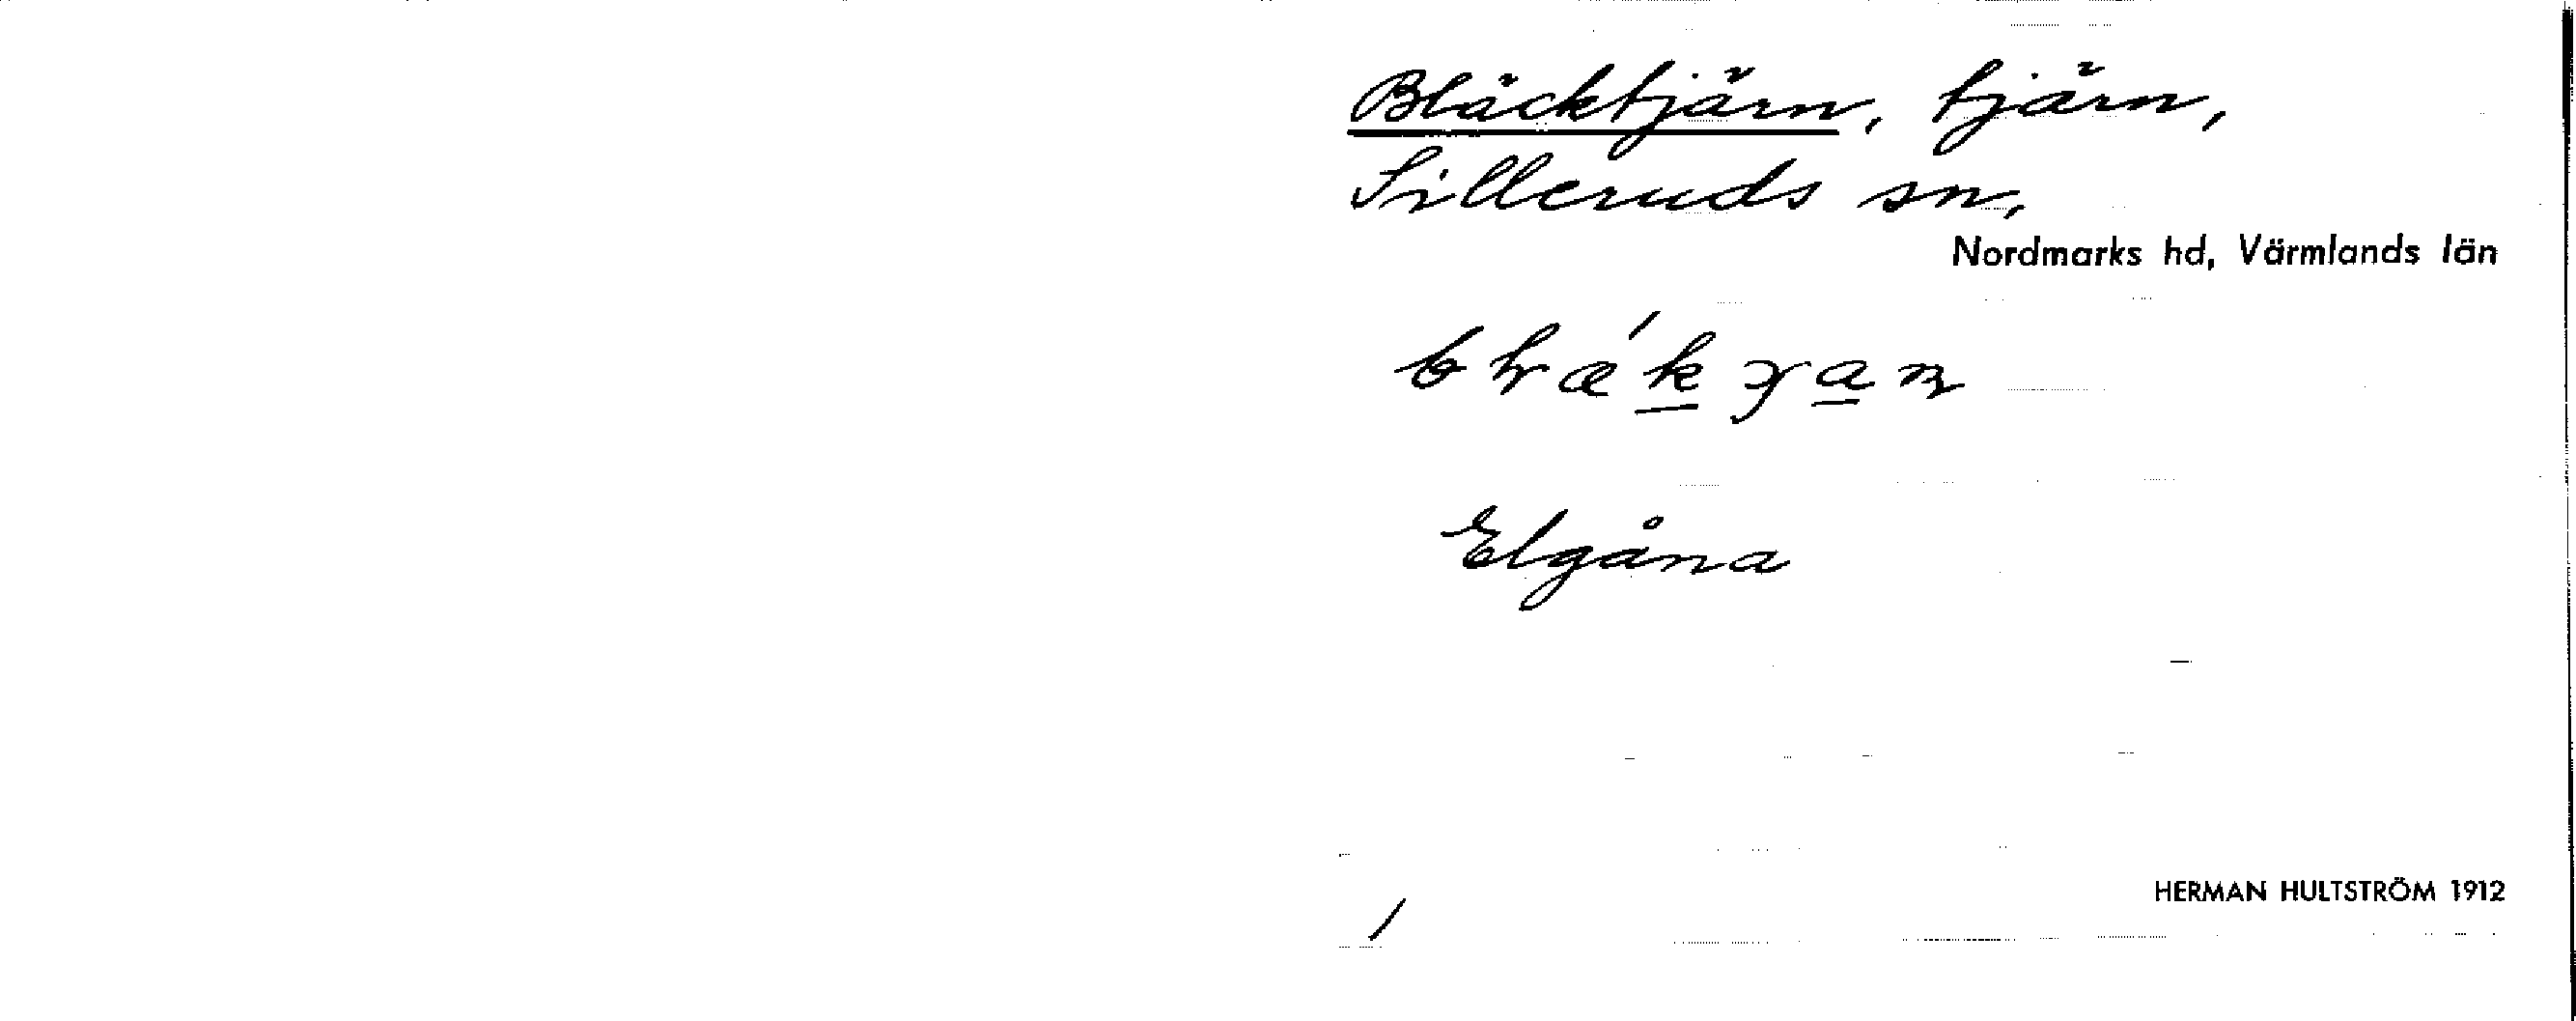 Bläcktjärn, tjärn,
Silleruds sn,
Nordmarks hd, Värmlands län
Elgåna
HERMAN HULTSTRÖM 1912